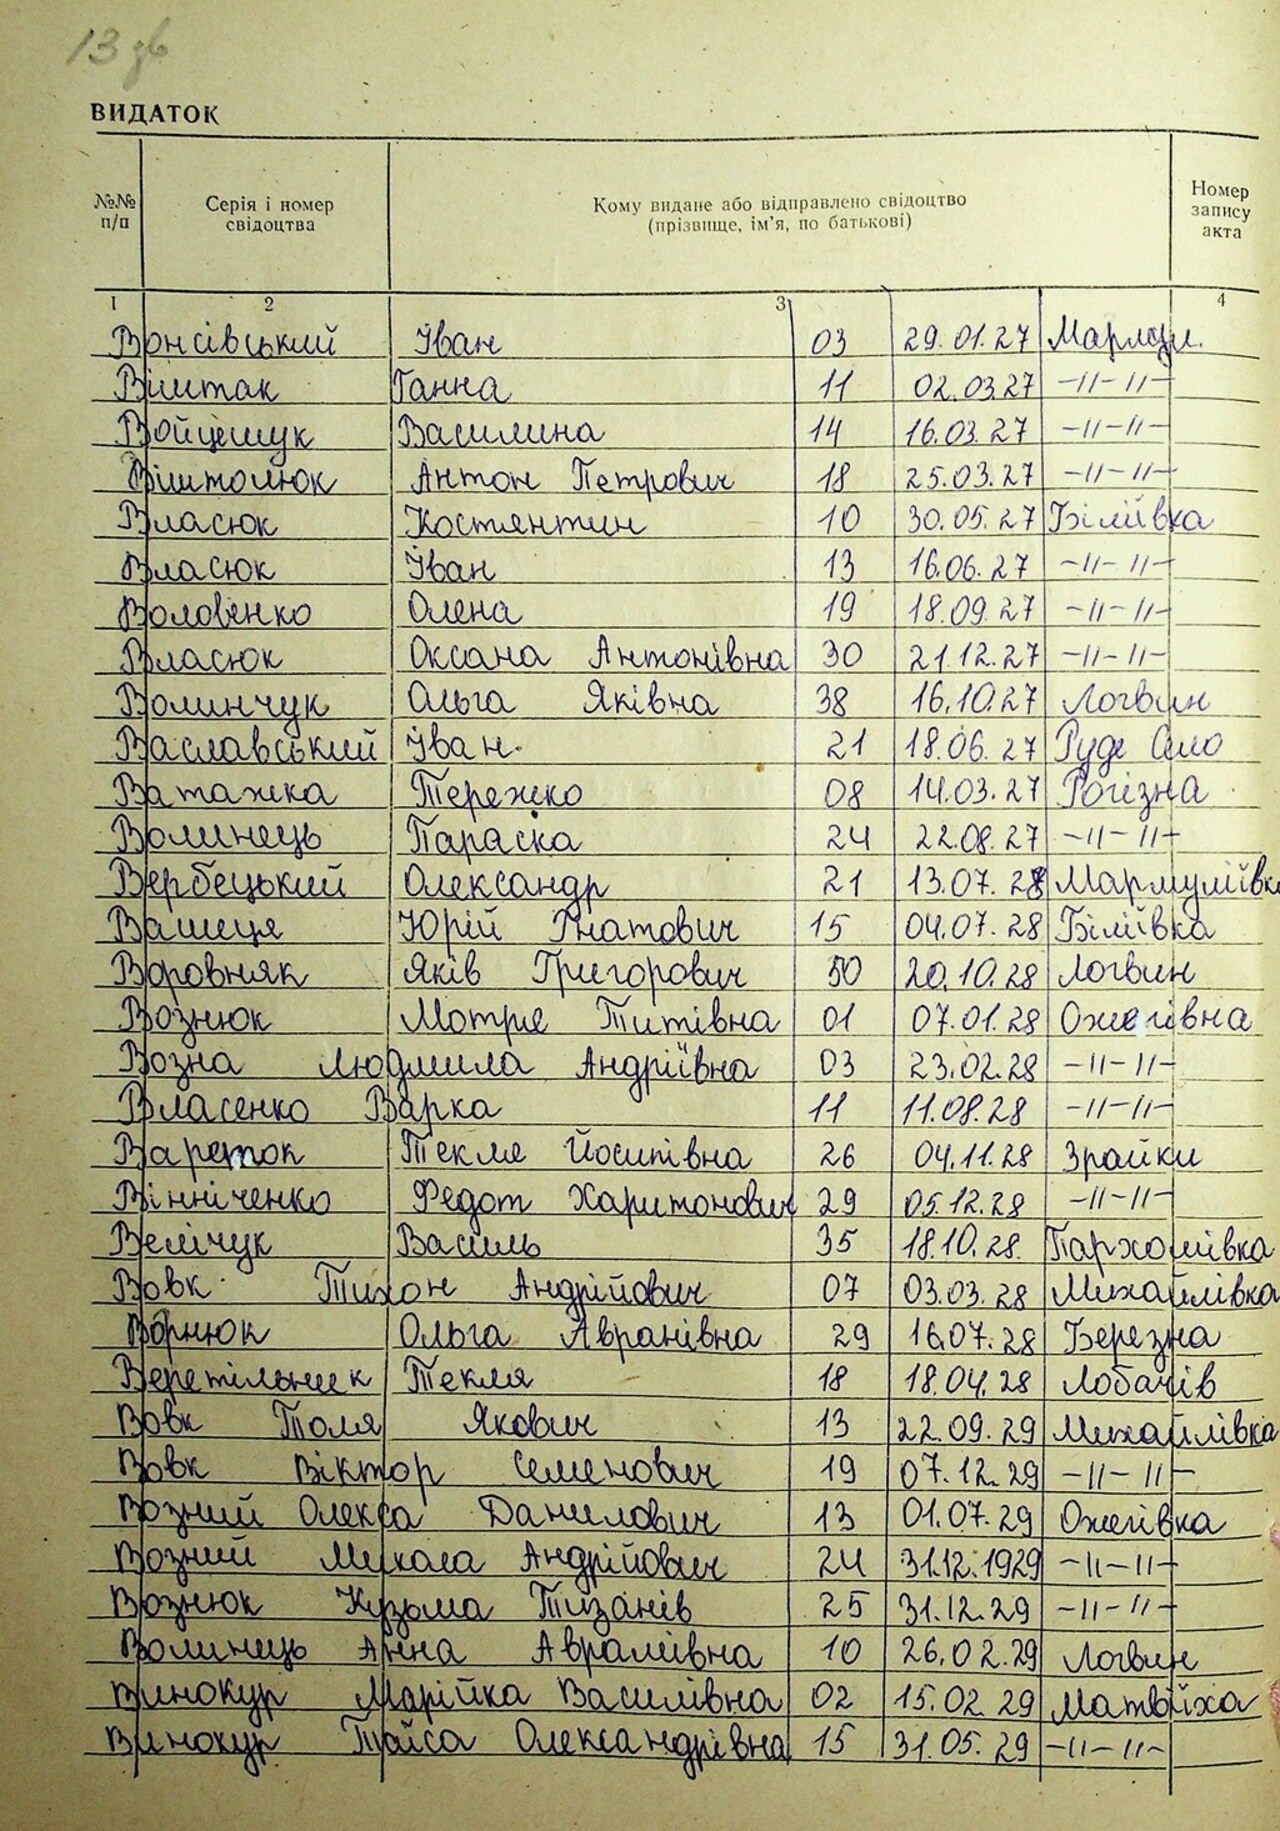 13 зв
ВИДАТОК
№№ п/п Серія і номер свідоцтва Кому видане або відправлено свідоцтво (прізвище, ім'я, по батькові) Номер запису акта
1 2 3 4
Вонсівський Іван 03 29.01.27
Віштак Ганна 11 02.03.27 -11-11-
Войцешук Василина 14 16.03.27 -11-11-
Віштолюк Антон Петрович 18 25.03.27 -11-11-
Власюк Костянтин 10 30.05.27 Біліївка
Власюк Іван 13 16.06.27 -11-11-
Воловенко Олена 19 18.09.27 -11-11-
Власюк Оксана Антонівна 30 21.12.27 -11-11-
Волинчук Ольга Яківна 38 16.10.27 Логвин
Ваславський Іван 21 18.06.27 Руде Село
Ватажка Тережко 08 14.03.27 Рогізна
Волинець Параска 24 22.08.27 -11-11-
Вербецький Олександр 21 13.07.28 Мармуліївка
Вашеця Юрій Гнатович 15 04.07.28 Біліївка
Воровняк Яків Григорович 50 20.10.28 Логвин
Вознюк Мотря Титівна 01 07.01.28 Ожегівна
Возна Людмила Андріївна 03 23.02.28 -11-11-
Власенко Варка 11 11.08.28 -11-11-
Вареток Текля Йосипівна 26 04.11.28 Зрайки
Вінніченко Федот Харитонович 29 05.12.28 -11-11-
Велічук Василь 35 18.10.28. Пархомівка
Вовк Тихон Андрійович 07 03.03.28 Михайлівка
Ворнюк Ольга Авранівна 29 16.07.28 Березна
Веретільник Текля 18 18.04.28 Лобачів
Вовк Толя Якович 13 22.09.29 Михайлівка
Вовк Віктор Семенович 19 07.12.29 -11-11-
Возний Олекса Данилович 13 01.07.29 Ожегівка
Возний Микола Андрійович 24 31.12.1929 -11-11-
Вознюк Кузьма Тизанів 25 31.12.29 -11-11-
Волинець Анна Авраміівна 10 26.02.29 Логвин
Винокур Марійка Василівна 02 15.02.29 Матвіїха
Винокур Таїса Олександрівна 15 31.05.29 -11-11-